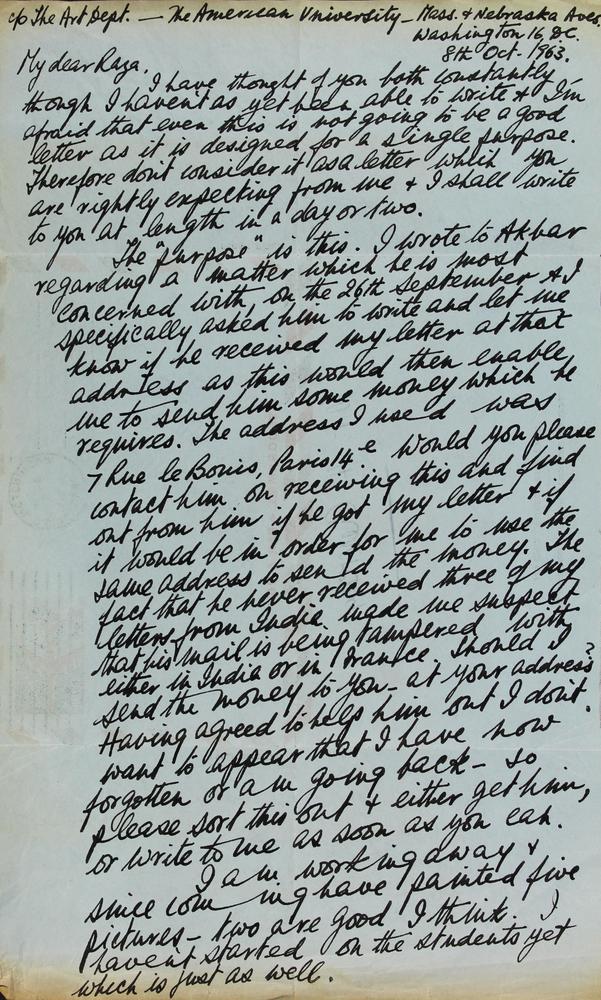 c/o The Art Dept. — The American University — Mass. & Nebraska Aves.
Washington 16, D.C.
8th Oct. 1963.
My dear Raza,
I have thought of you both constantly
though I havent as yet been able to write & I'm
afraid that even this is not going to be a good
letter as it is designed for a single purpose.
Therefore dont consider it as a letter which you
are rightly expecting from me & I shall write
to you at length in a day or two.
The "purpose" is this. I wrote to Akbar
regarding a matter which he is most
concerned with, on the 26th September & I
specifically asked him to write and let me
know if he received my letter at that
address as this would then enable
me to send him some money which he
requires. The address I used was
7 Rue le Bouis, Paris 14e. Would you please
contact him on receiving this and find
out from him if he got my letter & if
it would be in order for me to use the
same address to send the money. The
fact that he never received three of my
letters from India made me suspect
that his mail is being tampered with
either in India or in France. Should I
send the money to you - at your address?
Having agreed to help him out I dont
want to appear that I have now
forgotten or am going back - so
please sort this out & either get him,
or write to me as soon as you can.
I am working away &
since coming have painted five
pictures - two are good I think. I
havent started on the students yet
which is just as well.